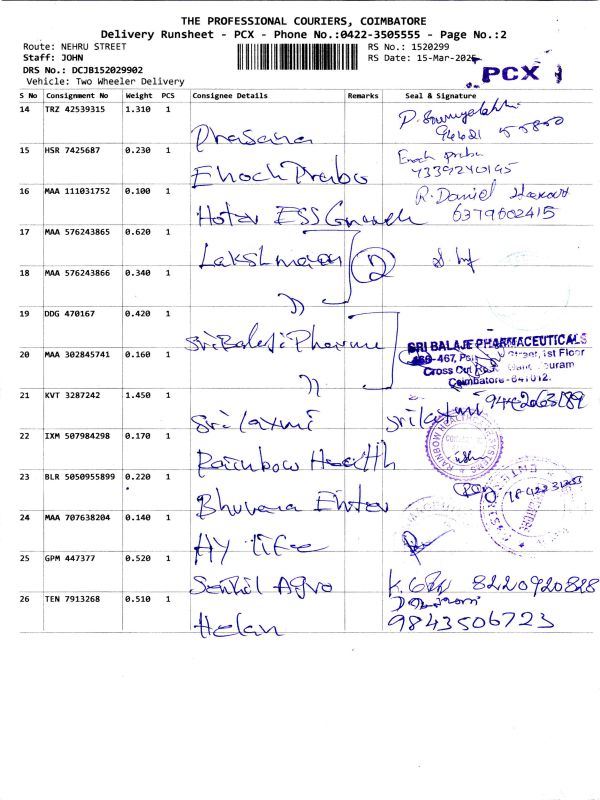 THE PROFESSIONAL COURIERS, COIMBATORE
Delivery Runsheet - PCX - Phone No.:0422-3505555 - Page No.:2
Route: NEHRU STREET
RS No.: 1520299
Staff: JOHN
RS Date: 15-Mar-2025
DRS No.: DCJB152029902
PCX
Vehicle: Two Wheeler Delivery
S No Consignment No Weight PCS Consignee Details Remarks Seal & Signature
14 TRZ 42539315 1.310 1
Prasana
15 HSR 7425687 0.230 1
Enoch Prabu
Enoch Prabu
7339240195
16 MAA 111031752 0.100 1
R. Daniel
Hotor ESS
6379602415
17 MAA 576243865 0.620 1
Lakshmanan
2
18 MAA 576243866 0.340 1
19 DDG 470167 0.420 1
Sri Balaji Pharma
SRI BALAJE PHARMACEUTICALS
466-467, Street, 1st Floor
Cross Cut
Coimbatore - 641012.
20 MAA 302845741 0.160 1
21 KVT 3287242 1.450 1
Sri laxmi
Sri laxmi
22 IXM 507984298 0.170 1
Rainbow Health
23 BLR 5050955899 0.220 1
Bhuvana
24 MAA 707638204 0.140 1
HY life
25 GPM 447377 0.520 1
Senthil Agro
8220920828
26 TEN 7913268 0.510 1
Helan
9843506723